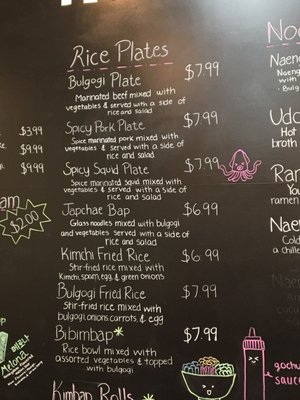 Rice Plates
Bulgogi Plate $7.99
Marinated beef mixed with
vegetables & served with a side of
rice and salad
Spicy Pork Plate $7.99
Spice marinated pork mixed with
vegetables & served with a side of
rice and salad
Spicy Squid Plate $7.99
Spice marinated squid mixed with
vegetables & served with a side of
rice and salad
Japchae Bap $6.99
Glass noodles mixed with bulgogi
and vegetables served with a side of
rice and salad
Kimchi Fried Rice $6.99
Stir-fried rice mixed with
Kimchi, spam, egg & green onions
Bulgogi Fried Rice $7.99
Stir-fried rice mixed with
bulgogi, onions, carrots, & egg
Bibimbap* $7.99
Rice bowl mixed with
assorted vegetables & topped
with bulgogi
Kimbap Rolls
$3.99
$9.99
$9.99
am
$2.00
Melona
Noo
Naen
Naeng
with
Bulg
Udo
Hot
broth
Ran
You
ramen
Nae
Cold
a chille
gochu
sauce